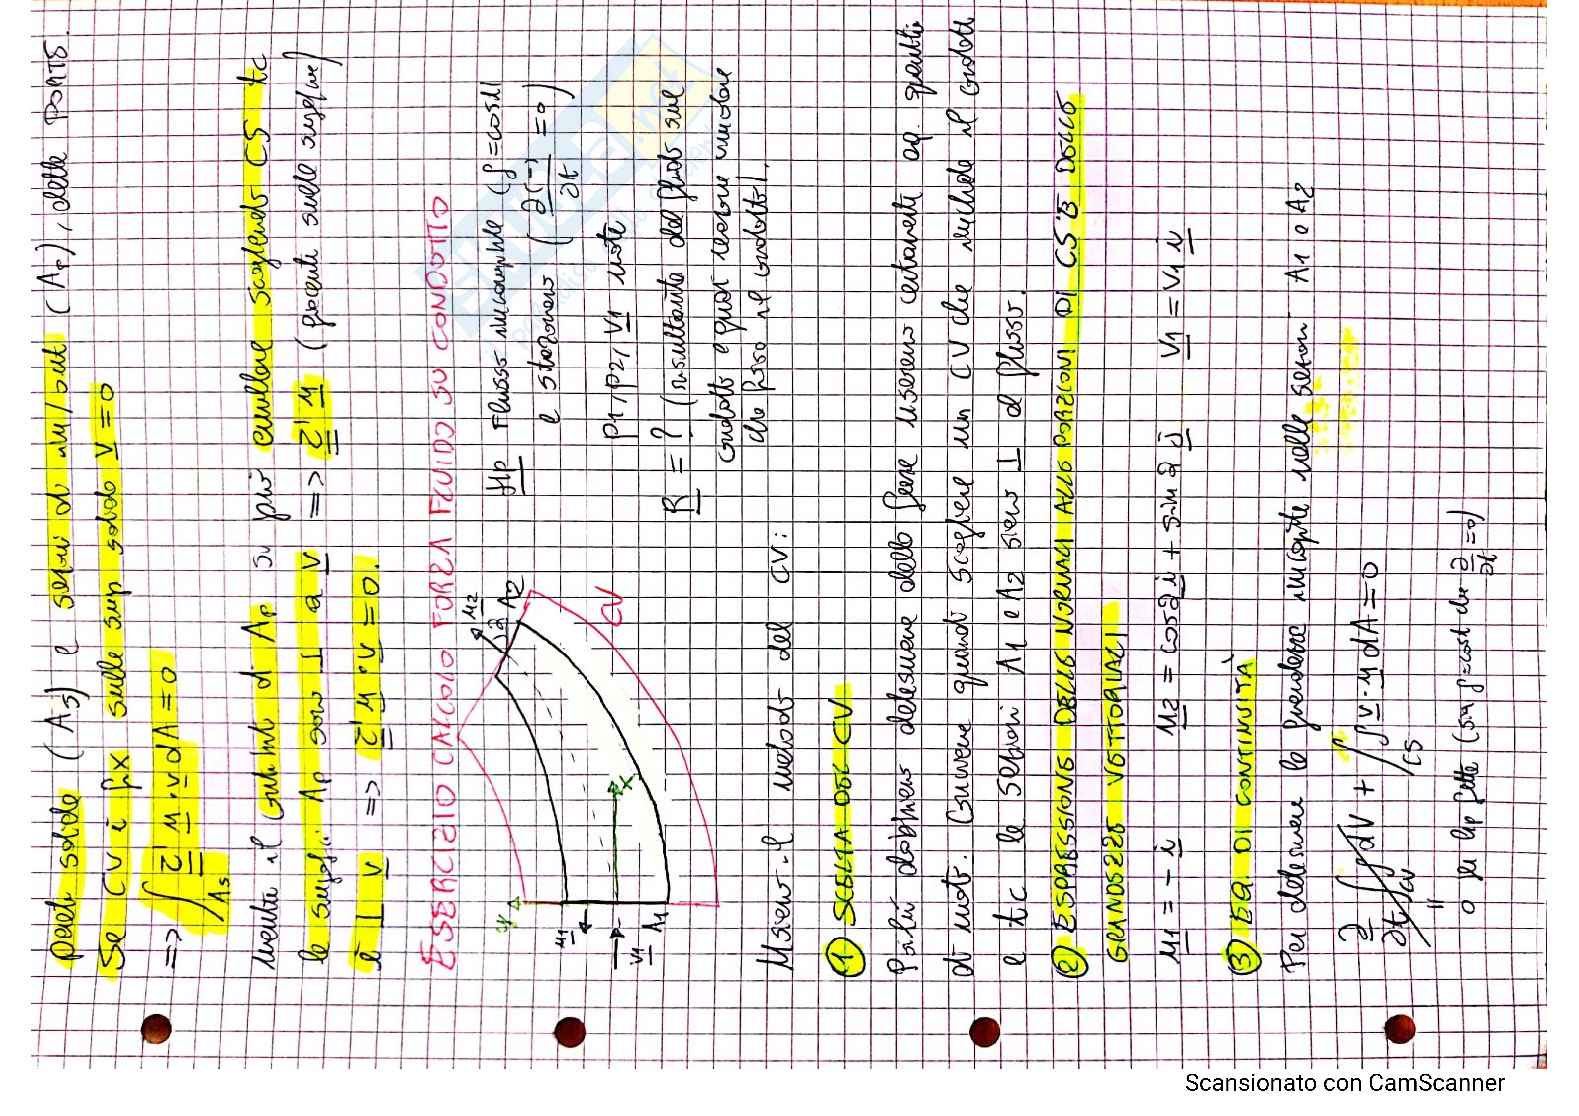 pareti solide (As) e sezioni di in/out (Ap), dette PORTE.
Se CV è fix sulle sup solide v = 0
=> ∫As τ' n · v dA = 0
mentre il contributo di Ap si può annullare scegliendo CS tc
le superfici Ap sono ⊥ a v => τ' n (presente sulle superfici)
è ⊥ v => τ' n · v = 0.
ESERCIZIO CALCOLO FORZA FLUIDO SU CONDOTTO
Hp Flusso incomprimibile (ρ = cost)
e stazionario (∂(-)/∂t = 0)
p1, p2, v1 note
R = ? (risultante del fluido sul
condotto e quindi reazione vincolare
che fissa il condotto).
y
x
n1
v1
A1
n2
α
A2
CV
Usiamo il metodo del CV:
① SCELTA DEL CV
Poiché dobbiamo determinare delle forze useremo certamente eq. quantità
di moto. Conviene quindi scegliere un CV che include il condotto
e tc le sezioni A1 e A2 siano ⊥ al flusso.
② ESPRESSIONE DELLE NORMALI ALLE PORZIONI DI CS E DELLE
GRANDEZZE VETTORIALI
n1 = - i n2 = cosα i + sinα j v1 = v1 i
③ EQ. DI CONTINUITÀ
Per determinare le grandezze incognite nelle sezioni A1 e A2
∂/∂t ∫CV ρ dV + ∫CS ρ v · n dA = 0
"
0 per hp fatte (sia ρ = cost che ∂/∂t = 0)
Scansionato con CamScanner